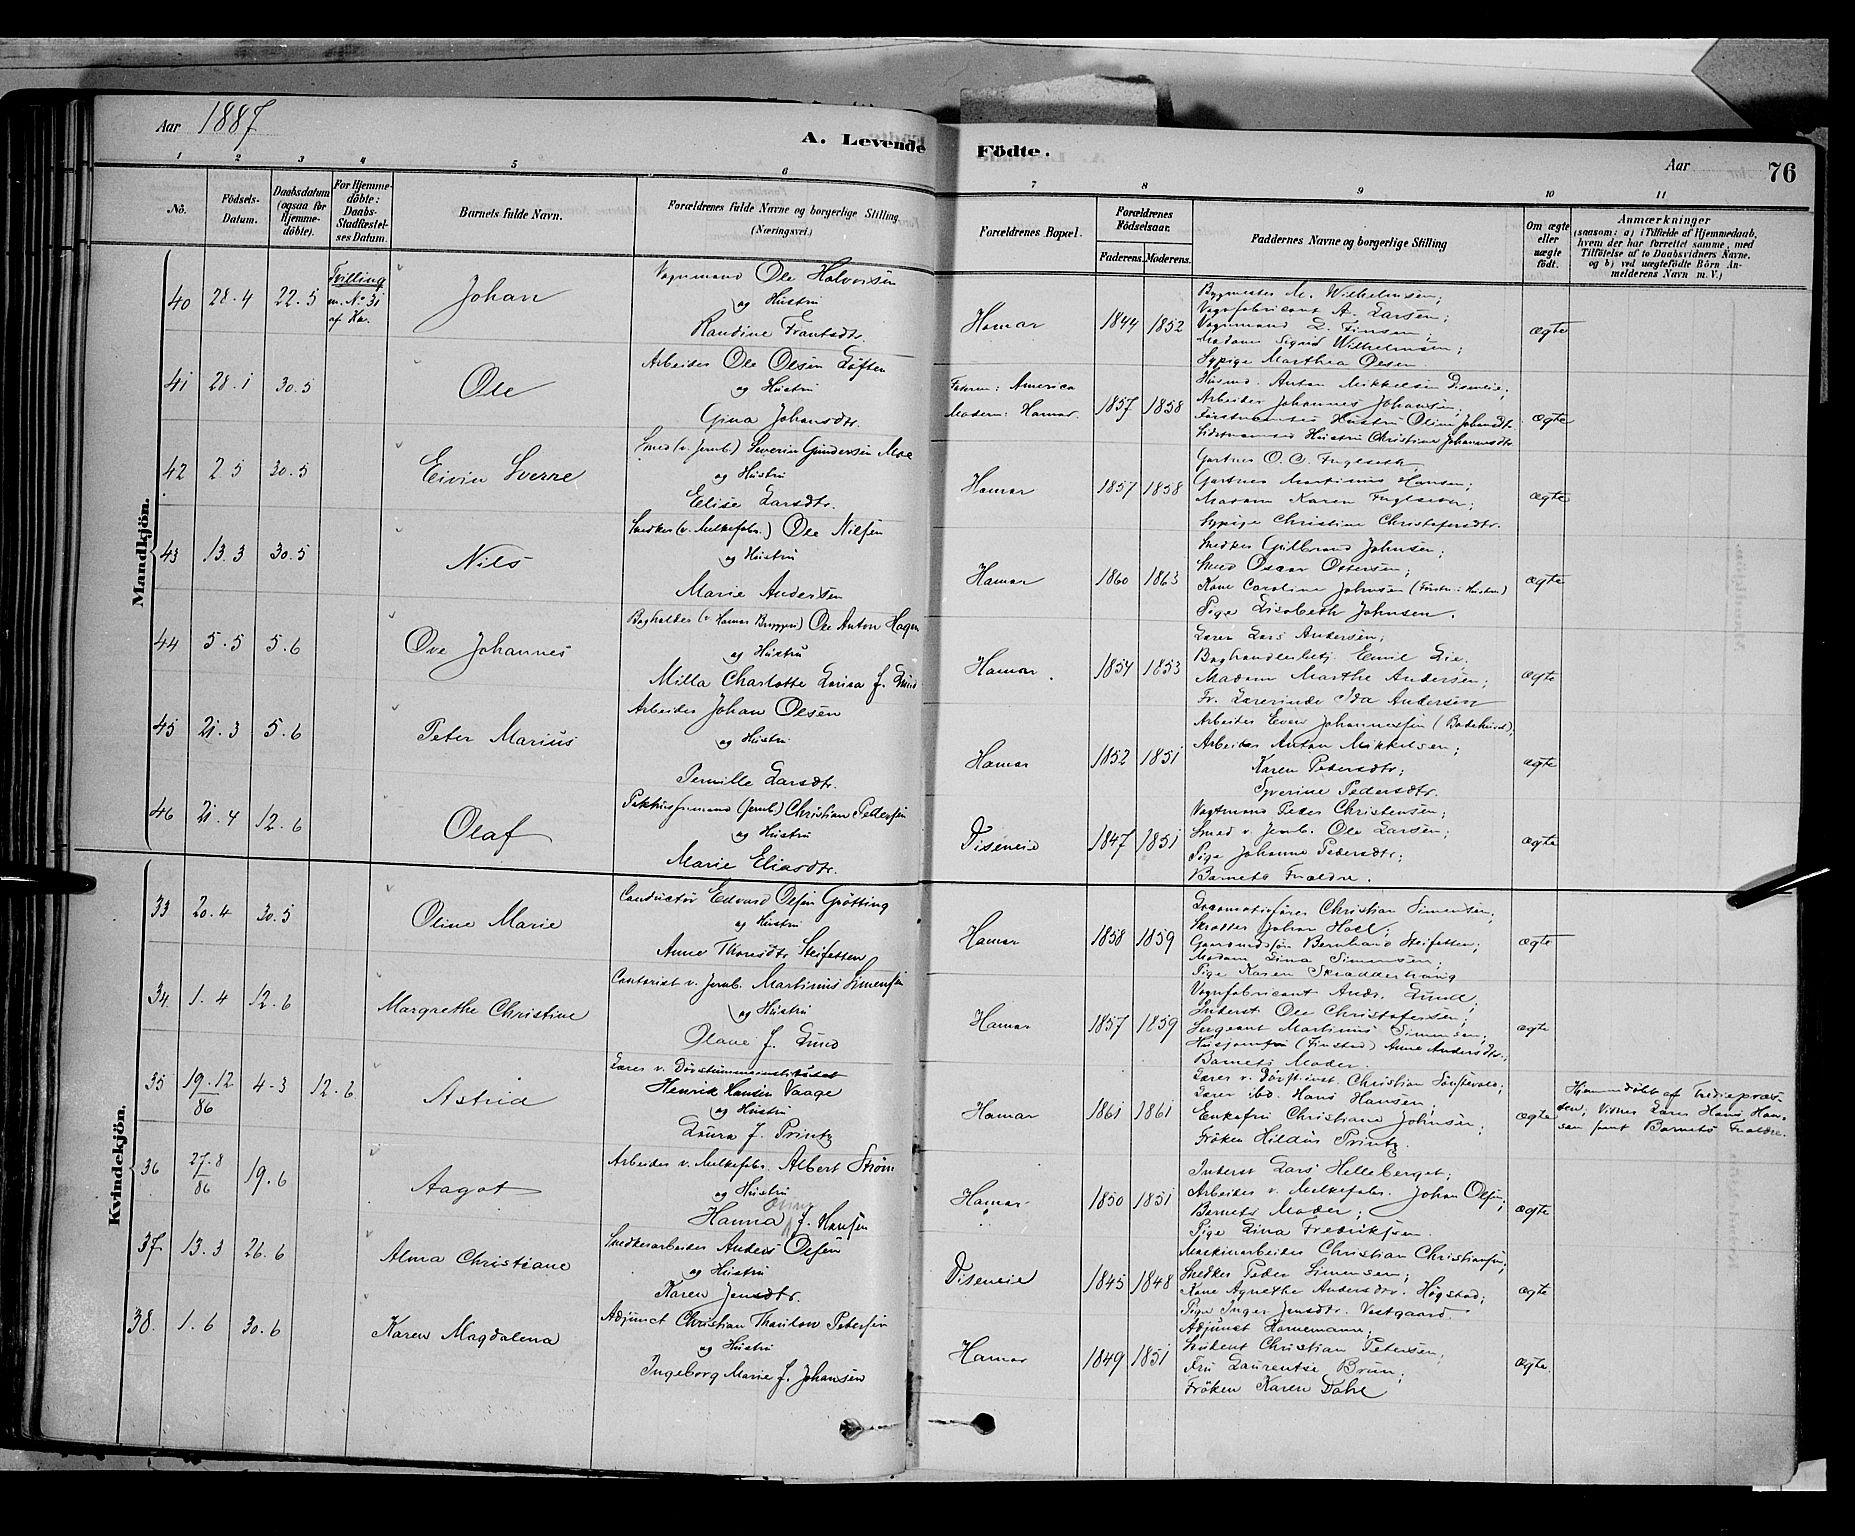 Aar 1887
A. Levende
Födte.
Aar
76
1 2 3 4 5 6 7 8 9 10 11
No.
Födsels-
Datum.
Daabsdatum
(ogsaa for
Hjemme-
döbte).
For Hjemme-
döbte:
Daabs-
Stadfæstel-
ses Datum.
Barnets fulde Navn.
Forældrenes fulde Navne og borgerlige Stilling
(Næringsvei.)
Forældrenes Bopæl.
Forældrenes
Födselsaar.
Faderens. Moderens.
Faddernes Navne og borgerlige Stilling
Om ægte
eller
uægte
födt.
Anmærkninger
(saasom: a) i Tilfælde af Hjemmedaab,
hvem der har forrettet samme, med
Tilföielse af to Daabsvidners Navne.
og b) ved uægtefödte Börn An-
melderens Navn m. V.)
Mandkjön.
40 28.4 22.5
Tvilling
m. No 31
af Kv.
Johan
Vognmand Ole Halvorsen
og Hustru
Randine Frantsdtr.
Hamar 1844 1852
Bygmester M. Wilhelmsen;
Vognfabricant A. Larsen;
Vognmand L. Finsen;
Madam Sigrid Wilhelmsen;
Sypige Marthea Olsen.
ægte
41 28.1 30.5
Ole
Arbeider Ole Olsen Løften
og Hustru
Gina Johansdtr.
Faderen: America
Moderen: Hamar. 1857 1858
Husmd. Anton Mikkelsen Diseneie;
Arbeider Johannes Johansen;
Hustru Oline Johansdtr
Hustru Christine Johannesdtr
ægte
42 2.5 30.5
Eivin Sverre
Smed (v. Jernb.) Severin Gundersen Moe
og Hustru
Elise Larsdtr.
Hamar 1857 1858
Gartner O. C. Fuglseth
Gartner Martinus Hansen;
Madam Karen Fuglseth
Sypige Christine Christofersdtr.
ægte
43 13.3 30.5
Nils
Snedker (v. Melkefabr.) Ole Nilsen
og Hustru
Marie Andersen
Hamar 1860 1863
Snedker Gulbrand Johnsen;
Smed Oscar Ottersen;
Kone Caroline Johnsen
Pige Elisabeth Johnsen.
ægte
44 5.5 5.6
Ove Johannes
Bogholder (v. Hamar Bryggeri) Ole Anton Hagen
og Hustru
Milla Charlotte Lovisa f. Lund
Hamar 1854 1853
Lærer Lars Andersen;
Boghandlerbetj. Emil Lie
Madam Marthe Andersen;
Fr. Lærerinde Ida Andersen
ægte
45 21.3 5.6
Peter Marius
Arbeider Johan Olsen
og Hustru
Pernille Larsdtr.
Hamar 1852 1851
Arbeider Even Johannessen
Arbeider Anton Mikkelsen;
Karen Pedersdtr;
Syverine Pedersdtr.
ægte
46 21.4 12.6
Olaf
Pakhusformand (Jernb.) Christian Pedersen
og Hustru
Marie Eliasdtr.
Diseneie 1847 1851
Vogtmand Peder Christensen;
Smed v. Jernb. Ole Larsen;
Pige Johanne Pedersdtr;
Barnets Forældre.
ægte
Kvindekjön.
33 20.4 30.5
Oline Marie
Conductør Edvard Olsen Grötting
og Hustru
Anne Thoresdtr Steifetten
Hamar 1858 1859
Locomotivfører Christian Simensen;
Skrædder Johan Hoel;
Gaardmdssøn Bernhard Steifetten;
Madam Lina Simensen;
Pige Karen Skrædderhaug
ægte
34. 1.4 12.6
Margrethe Christine
Contorist v. Jernb. Martinus Simensen
og Hustru
Olave f. Lund
Hamar 1857 1859
Vognfabricant Andr. Lund;
Inderst Ole Christofersen;
Sergeant Martinus Simensen;
Husjomfru (Finstad) Anne Andersdtr.;
Barnets Moder.
ægte
35 19.12/86 4-3 12.6
Astrid
Lærer v. Døvstummeinstitutet
Henrik Hansen Vaage
og Hustru
Laura f. Printz
Hamar 1861 1861
Lærer v. Døvst.inst. Christian
Lærer ibd. Hans Hansen;
Enkefru Christiane Johnsen;
Frøken Hildus Printz.
ægte
Hjemmedøbt af Trediepræs-
ten; Vidner Lærer Hans Han-
sen samt Barnets Forældre.
36 27.8/86 19.6
Aagot
Arbeider v. Melkefabr. Albert Strøm
og Hustru
Hanna f. Hansen
Hamar 1850 1851
Inderst Lars Helleberget;
Arbeider v. Melkefabr. Johan Olsen;
Barnets Moder;
Pige Lina Fredriksen.
ægte
37 13.3 26.6
Alma Christiane
Snedkerarbeider Anders Olsen
og Hustru
Karen Jensdtr.
Diseneie 1845 1848
Maskinarbeider Christian Christiansen;
Snedker Peder Simensen;
Kone Agnethe Andersdtr. Høgstad;
Pige Inger Jensdtr. Vestgaard
ægte
38. 1.6 30.6
Karen Magdalena
Adjunct Christian Thaulow Petersen
og Hustru
Ingeborg Marie f. Johansen
Hamar 1849 1851
Adjunct Hornemann;
Student Christian Petersen;
Fru Laurentse Brun;
Frøken Karen Dahl
ægte